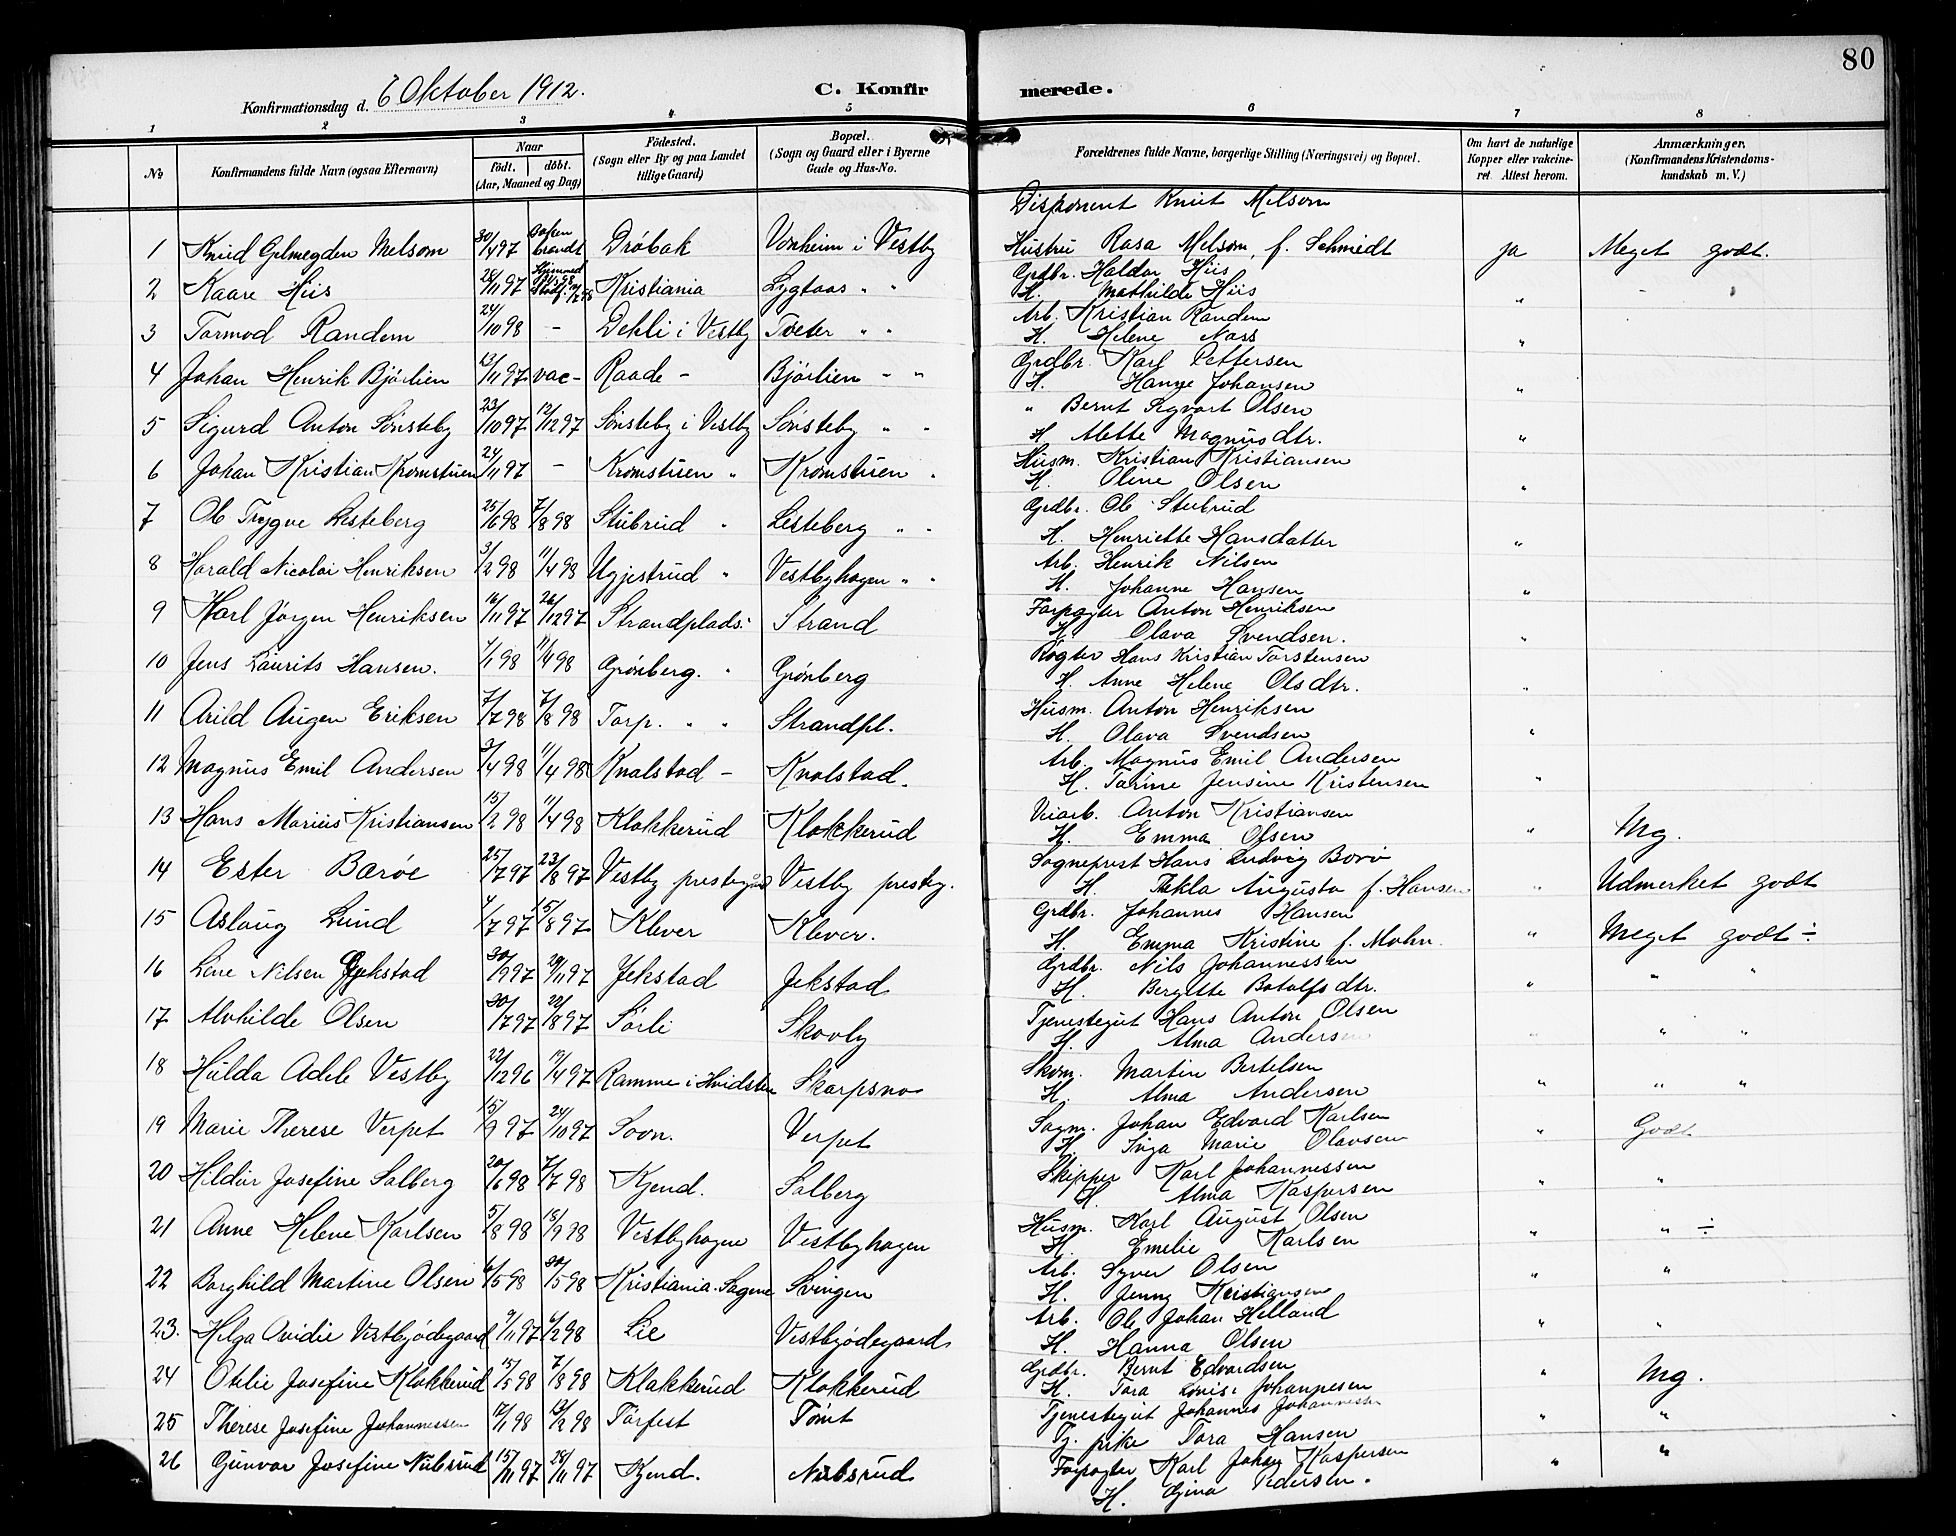 80
Konfirmationsdag d. 6 Oktober 1912.
C. Konfirmerede.
1 2 3 4 5 6 7 8
No
Konfirmandens fulde Navn (ogsaa Efternavn)
Naar
født. døbt.
(Aar, Maaned og Dag)
Fødested.
(Sogn eller By og paa Landet
tillige Gaard)
Bopæl.
(Sogn og Gaard eller i Byerne
Gade og Hus-No.
Forældrenes fulde Navne, borgerlige Stilling (Næringsvei) og Bopæl.
Om havt de naturlige
Kopper eller vakcine-
ret. Attest herom.
Anmærkninger.
(Konfirmandens Kristendoms-
kundskab m. V.)
Disponent Knut Melsom
1 Knud Melsom 30/4 97 Drøbak Vonheim i Vestby Hustru Rosa Melsom, f. Schmidt ja Meget godt.
Grdbr. Haldor Hiis
2 Kaare Hiis 28/11 97 Kristiania Lygtaas " " H. Mathilde Hiis "
Arb. Kristian Randem
3 Tormod Randem 24/10 98 - Dehli i Vestby Tveter " " H. Helene Nass "
Grdbr. Karl Pettersen
4 Johan Henrik Bjørlien 13/11 97 vac- Raade - Bjørlien - " H. Hanne Johansen "
" Bernt Sigvart Olsen
5 Sigurd Anton Sønsteby 23/10 97 12/12 97 Sønsteby i Vestby Sønsteby " " H Mette Magnusdtr. "
Husm. Kristian Kristiansen
6 Johan Kristian Kromstuen 24/11 97 - Kromstuen " Kromstuen " H. Oline Olsen "
Grdbr. Ole Stubrud
7 Ole Trygve Lesteberg 25/6 98 7/8 98 Stubrud " Lesteberg " " H. Henriette Hansdatter "
Arb. Henrik Nilsen
8 Harald Nicolai Henriksen 3/2 98 11/4 98 Ugjestrud " Vestbyhagen " " H. Johanne Hansen "
Forpagter Anton Henriksen
9 Karl Jørgen Henriksen 16/11 97 26/12 97 Strandplads Strand H. Olava Svendsen. "
Røgter Hans Kristian Torstensen
10 Jens Laurits Hansen. 7/1 98 11/4 98 Grønberg. " Grønberg H. Anne Helene Olsdtr. "
Husm. Anton Henriksen
11 Arild Augen Eriksen 7/7 98 7/8 98 Torp. " " Strandpl. H. Olava Svendsen "
Arb. Magnus Emil Andersen
12 Magnus Emil Andersen 3/4 98 11/4 98 Knalstad - Knalstad. H. Torine Jensine Kristensen "
Veiarb. Anton Kristiansen
13 Hans Marius Kristiansen 15/2 98 11/4 98 Klokkerud Klokkerud H. Emma Olsen " Mg.
Sogneprest Hans Ludvig Barø
14 Ester Barøe 25/7 97 23/8 97 Vestby prestegård Vestby presteg. H. Thekla Augusta f. Hansen " Udmerket godt
Grdbr. Johannes Hansen
15 Aslaug Lund 4/7 97 15/8 97 Klever Klever. H. Emma Kristine f. Mohn. " Meget godt ÷
Grdbr. Nils Johannessen
16 Line Nilsen Jekstad 30/9 97 29/11 97 Jekstad Jekstad H. Bergitte Botolfsdtr. " " "
Tjenestegut Hans Anton Olsen
17 Alvhilde Olsen 30/7 97 22/8 97 Sørli Skovly H. Alma Andersen " " "
Skom. Martin Bertelsen
18 Hulda Adele Vestby 22/12 96 19/4 97 Ramme i Hvidsten Skarpsno H. Alma Andersen " " "
Sagm. Johan Edvard Karlsen
19 Marie Therese Verpet 15/9 97 24/10 97 Soon. Verpet H. Inga Marie Olavsen " Godt
Skipper Karl Johannessen
20 Hildur Josefine Solberg 20/6 98 7/7 98 Kjend. Solberg H. Alma Kaspersen " "
Husm. Karl August Olsen
21 Anne Helene Karlsen 5/8 98 18/9 98 Vestbyhagen Vestbyhagen H. Emelie Karlsen " " ÷
Arb. Syver Olsen
22 Borghild Martine Olsen 6/5 98 30/5 98 Kristiania. Sagene Svingen H. Jenny Kristiansen " "
Arb. Ole Johan Helland
23. Helga Ovidie Vestbyødegaard 9/11 97 6/2 98 Lie Vestbyødegaard H. Hanna Olsen " "
Grdbr. Bernt Edvardsen
24 Otelie Josefine Klokkerud 15/5 98 7/8 98 Klokkerud Klokkerud H. Tora Lovise Johannesen " Mg.
Tjenestegut Johannes Johannessen
25 Therese Josefine Johannessen 12/1 98 13/2 98 Torfest Tomt Tj. pike Tora Hansen " "
Forpagter Karl Johan Kaspersen
26 Gunvor Josefine Nilsrud 15/11 97 28/11 97 Kjend. Nilsrud H. Gina Pedersen. " "